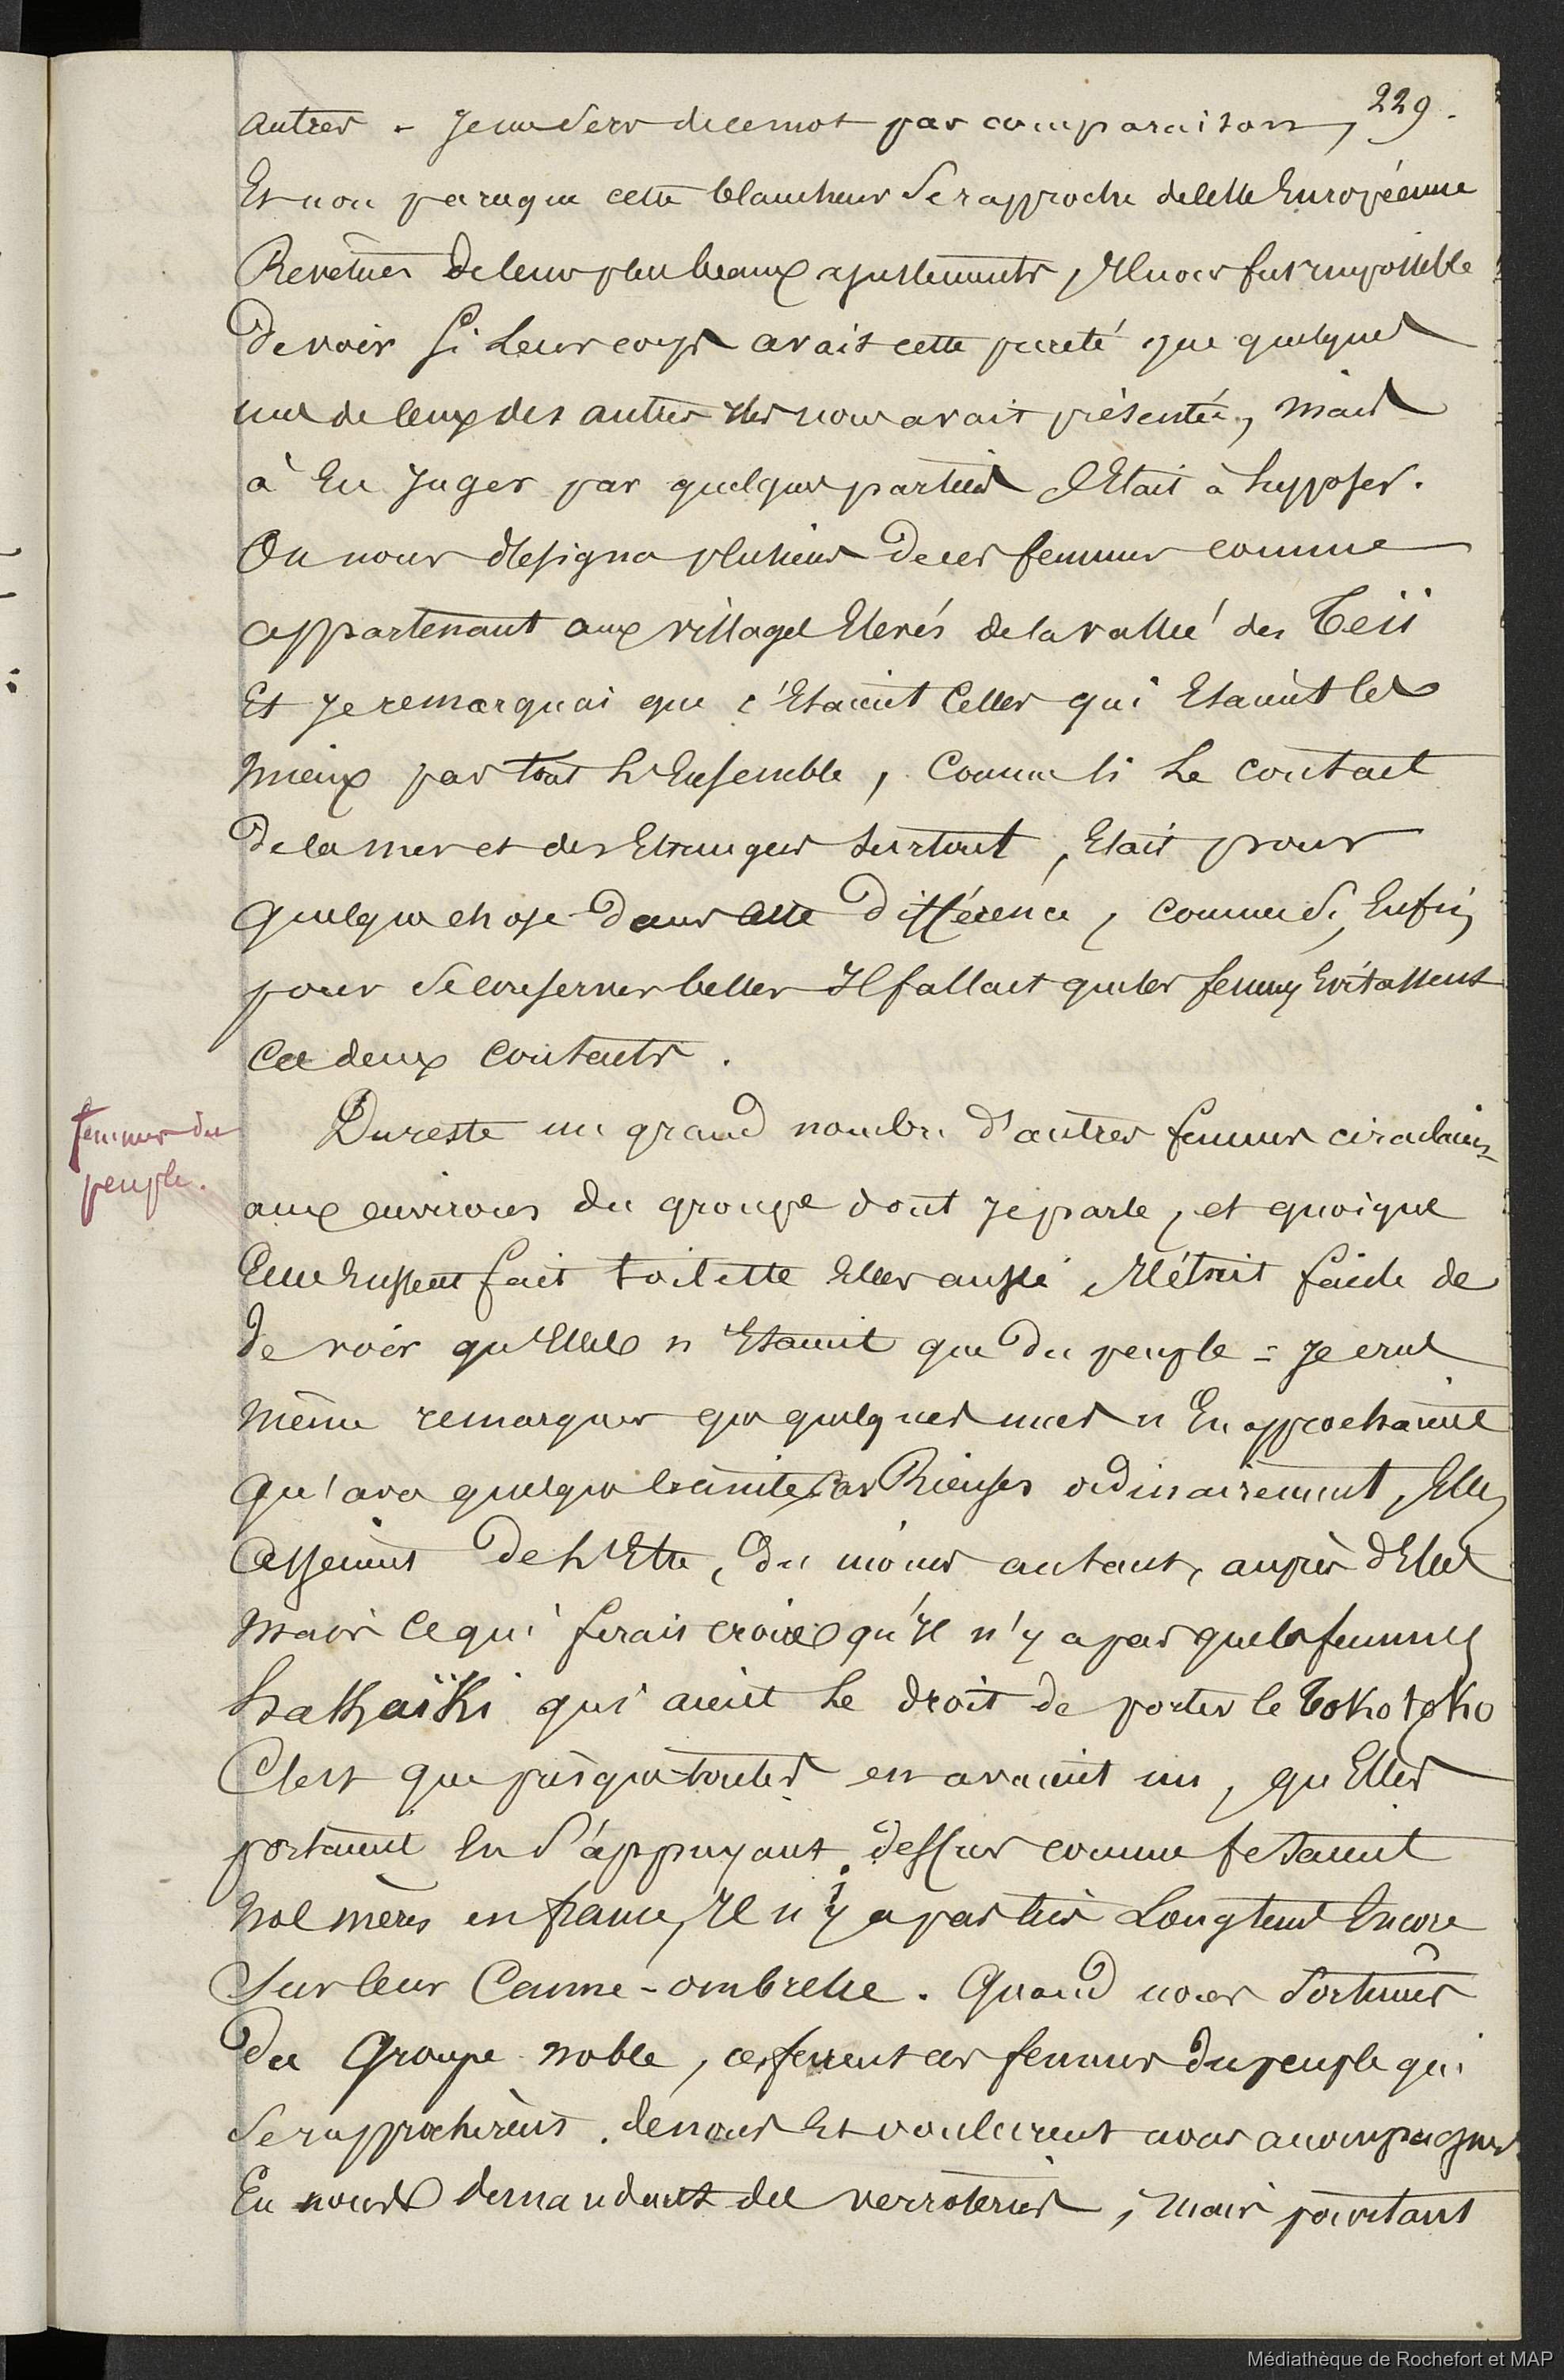 229.
autres - Je me sers de ce mot par comparaison,
Et non parceque cette blancheur se rapproche de celle Européenne
Revêtues de leurs plus beaux ajustements, Il nous fut impossible
de voir si leur corps avait cette pureté que quelques
uns de ceux des autres Iles nous avait présentée, mais
à En Juger par quelques parties C'Etait à supposer.
On nous désigna plusieurs de ces femmes comme
appartenant aux villages Elevés de la vallée des Téïi
Et Je remarquai que c'Etaient Celles qui Etaient les
mieux par tout L'Ensemble, Comme si Le contact
de la mer et des Etrangers surtout, Etait pour
quelque chose dans cette différence, comme si, Enfin,
pour se conserver belles Il fallait que les femmes Evitassent
ces deux contacts.
femmes du
peuple.
Du reste un grand nombre d'autres femmes circulaient
aux environs du groupe dont Je parle, et quoique
Elles Eussent fait toilette Elles aussi, Il était facile de
de voir qu'Elles n'Etaient que du peuple = Je crus
même remarquer que quelques unes n'En approchaient
qu'avec quelque crainte, car Rieuses ordinairement, Elles
cessaient de L'Etre, du moins autant, auprès d'Elles
mais ce qui ferais croire qu'Il n'y a pas que les femmes
hakaïki qui aient Le droit de porter le tokotoko
C'est que presque toutes en avaient un, qu'Elles
portaient En s'appuyant dessus comme fesaient
nos mères en france, Il n'y a pas très Longtems Encore
sur leur Canne-ombrelle. Quand nous sortimes
du Groupe noble, ce furent ces femmes du peuple qui
se rapprochèrent de nous Et voulurent nous accompagner
En nous demandant des verroteries, mais pourtant
Médiathèque de Rochefort et MAP